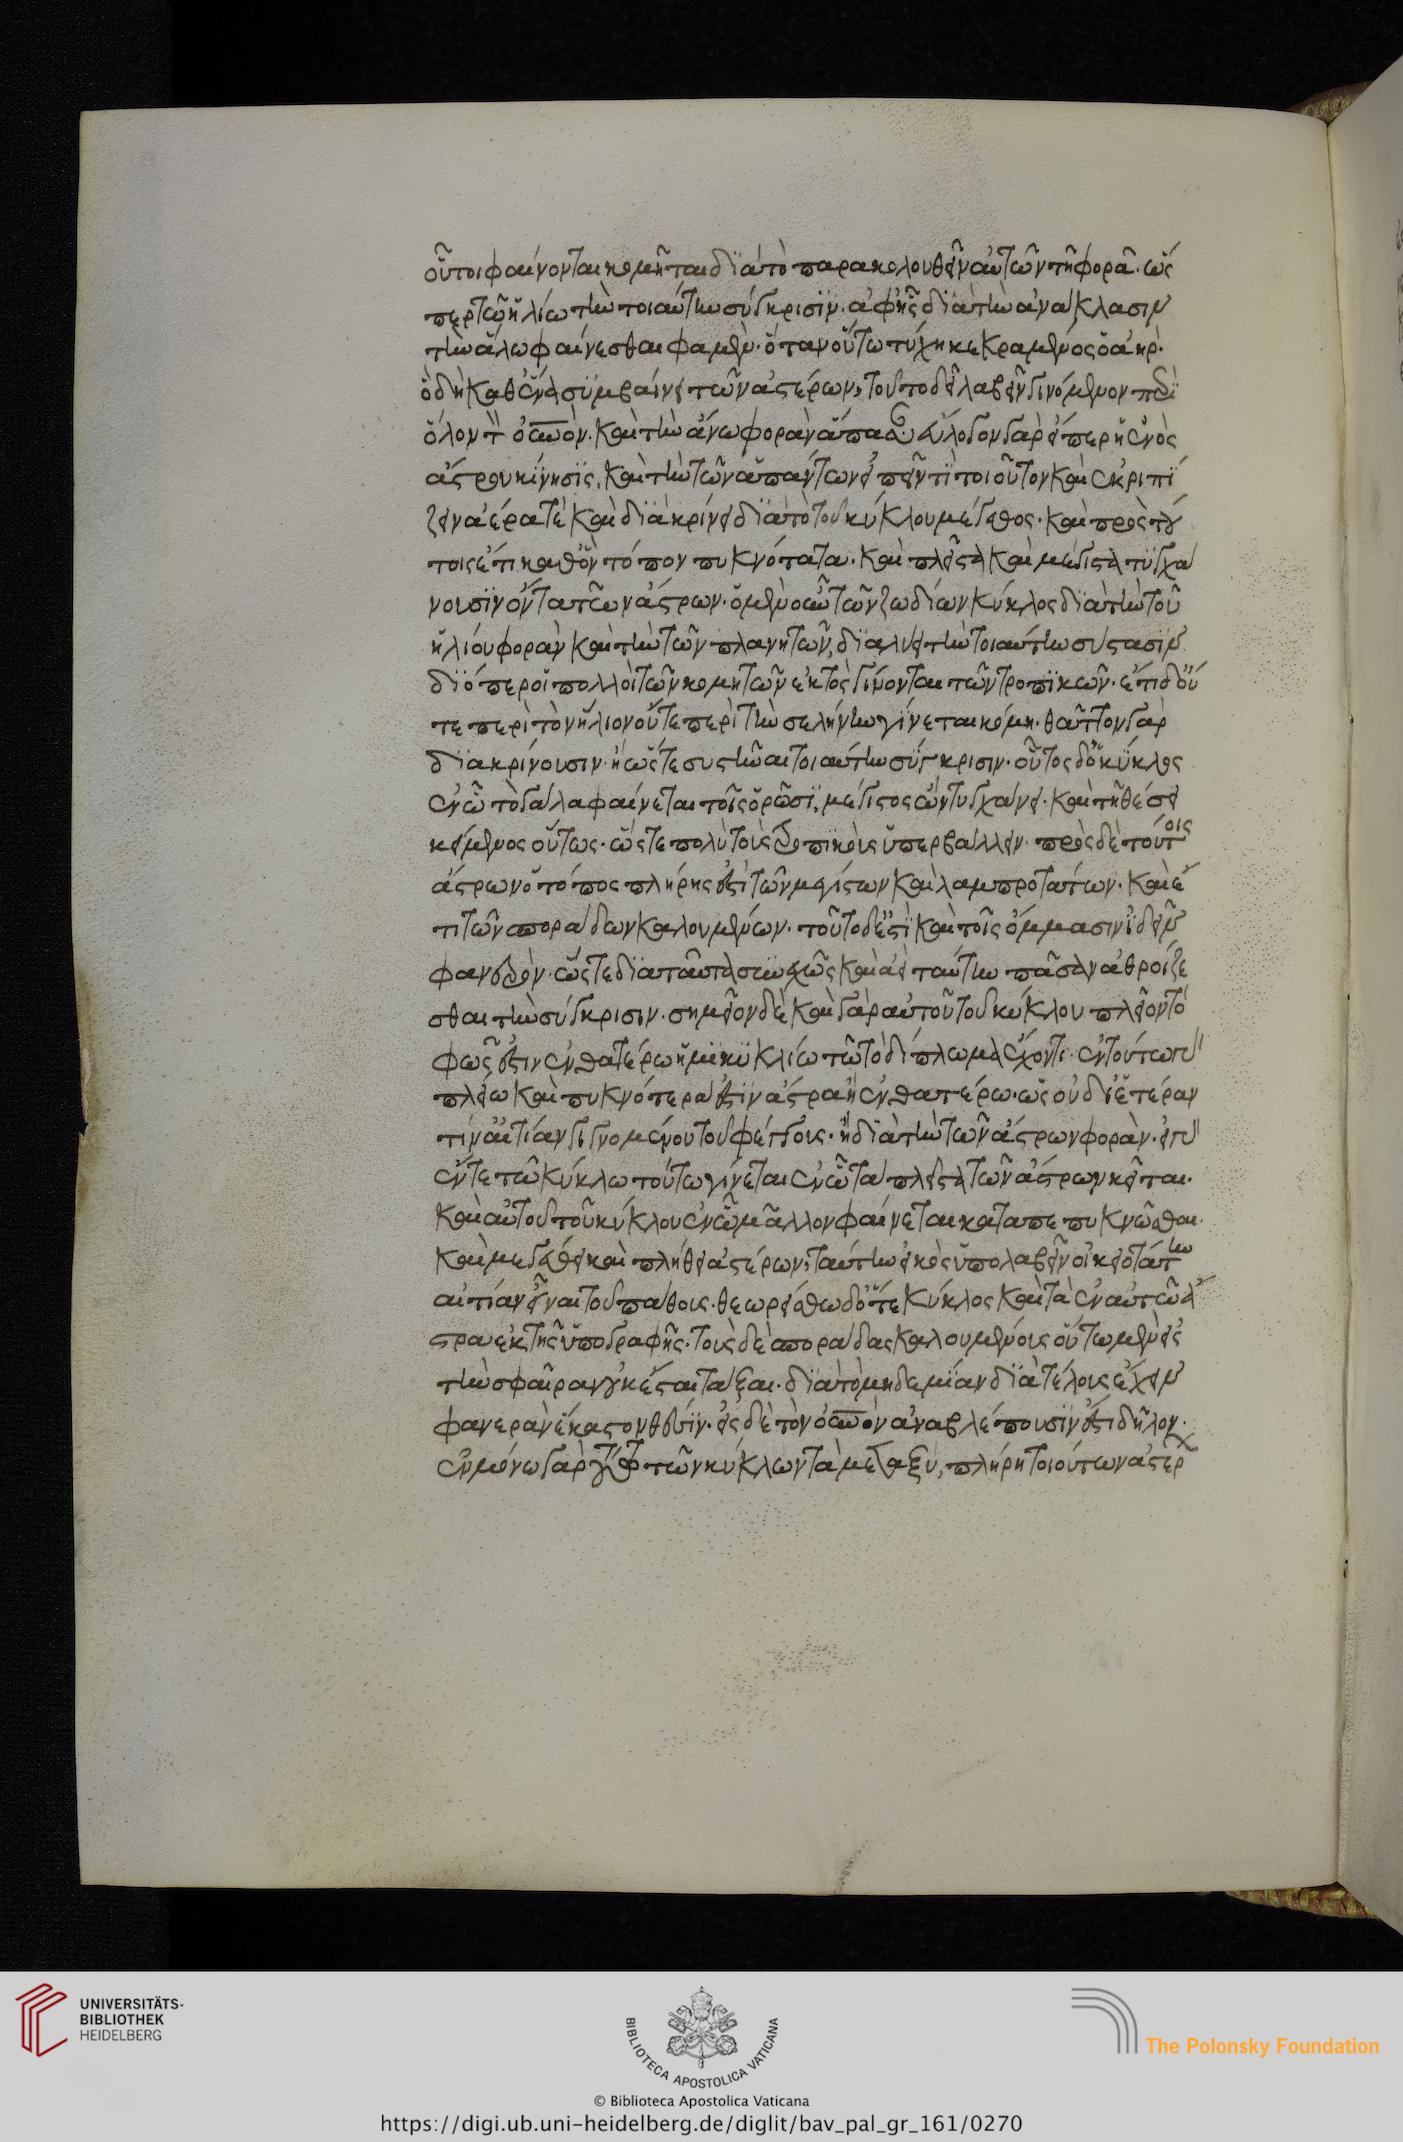 οὗτοι φαίνονται κομῆται διὰ τὸ παρακολουθεῖν αὐτῶν τῇ φορᾶ· ὥς
περ τῶ ἡλίω τὴν τοιαύτην σύγκρισιν. ἀφ' ἧς διὰ τὴν ἀνάκλασιν
τὴν ἅλω φαίνεσθαι φαμὲν. ὅταν οὕτω τύχη κεκραμένος ὁ ἀήρ.
ὃ δὴ καθ' ἕνα συμβαίνει τῶν ἀστέρων, τοῦτο δεῖ λαβεῖν γινόμενον περὶ
ὅλον τὸν οὐνὸν. καὶ τὴν ἄνω φορὰν ἅπασαν. εὔλογον γὰρ εἴπερ ἡ ἑνὸς
ἄστρου κίνησις, καὶ τὴν τῶν ἁπάντων εἰπεῖν τὶ τοιοῦτον καὶ ἐκριπί
ζειν ἀέρα τὲ καὶ διακρίνει διὰ τὸ τοῦ κύκλου μέγεθος. καὶ πρὸς τού
τοις ἔτι καθ' ὃν τόπον πυκνότατα. καὶ πλεῖστα καὶ μέγιστα τυγχά
νουσιν ὄντα τῶν ἄστρων. ὁ μὲν οὖν τῶν ζωδίων κύκλος διὰ τὴν τοῦ
ἡλίου φορὰν καὶ τὴν τῶν πλανητῶν, διαλύει τὴν τοιαύτην σύστασιν
διόπερ οἱ πολλοὶ τῶν κομητῶν ἐκτὸς γίνονται τῶν τροπικῶν. ἔτι δ' οὔ
τε περὶ τὸν ἥλιον οὔτε περὶ τὴν σελήνην γίνεται κόμη. θᾶττον γὰρ
διακρίνουσιν. ἢ ὥστε συστῆναι τοιαύτην σύγκρισιν. οὗτος δ' ὁ κύκλος
ἐν ὧ τὸ γάλα φαίνεται τοῖς ὁρῶσι, μέγιστος ὢν τυγχάνει. καὶ τῇ θέσει
κείμενος οὕτως. ὥστε πολὺ τοὺς τροπικοὺς ὑπερβάλλειν. πρὸς δὲ τούτοις
ἄστρων ὁ τόπος πλήρης ἐστὶ τῶν μεγίστων καὶ λαμπροτάτων. καὶ ἔ
τι τῶν σποράδων καλουμένων. τοῦτο δ' ἐστὶ καὶ τοῖς ὄμμασιν ἰδεῖν
φανερόν. ὥστε διὰ ταῦτα συνεχῶς καὶ ἀεὶ ταύτην πᾶσαν ἀθροίζε
σθαι τὴν σύγκρισιν. σημεῖον δὲ καὶ γὰρ αὐτοῦ τοῦ κύκλου πλεῖον τὸ
φῶς ἐστιν ἐν θατέρω ἡμικυκλίω τῶ τὸ δίπλωμα ἔχοντι. ἐν τούτω γὰρ
πλείω καὶ πυκνότερα ἐστὶν ἄστρα ἢ ἐν θατέρω. ὡς οὐ δι' ἑτέραν
τιν' αἰτίαν γιγνομένου τοῦ φέγγους. ἢ διὰ τὴν τῶν ἄστρων φορὰν. εἰ γὰρ
ἔν τε τῶ κύκλω τούτω γίνεται ἐν ὧ τὰ πλεῖστα τῶν ἄστρων κεῖται.
καὶ αὐτοῦ τοῦ κύκλου ἐν ὧ μᾶλλον φαίνεται καταπεπυκνῶσθαι.
καὶ μεγέθει καὶ πλήθει ἀστέρων, ταύτην εἰκὸς ὑπολαβεῖν οἰκειοτάτην
αἰτίαν εἶναι τοῦ πάθους. θεωρείσθω δ' ὅ τε κύκλος καὶ τὰ ἐν αὐτῶ ἄ
στρα ἐκ τῆς ὑπογραφῆς. τοὺς δὲ σποράδας καλουμένους οὕτω μὲν εἰς
τὴν σφαῖραν οὐκ ἔστι τάξαι. διὰ τὸ μηδεμίαν διὰ τέλους ἔχειν
φανερὰν ἕκαστον θέσιν. εἰς δὲ τὸν οὐνὸν ἀναβλέπουσίν ἐστι δῆλον.
ἐν μόνω γὰρ τούτω τῶν κύκλων τὰ μεταξύ, πλήρη τοιούτων ἀστέρ

UNIVERSITÄTS-
BIBLIOTHEK
HEIDELBERG
BIBLIOTECA APOSTOLICA VATICANA
© Biblioteca Apostolica Vaticana
The Polonsky Foundation
https://digi.ub.uni-heidelberg.de/diglit/bav_pal_gr_161/0270